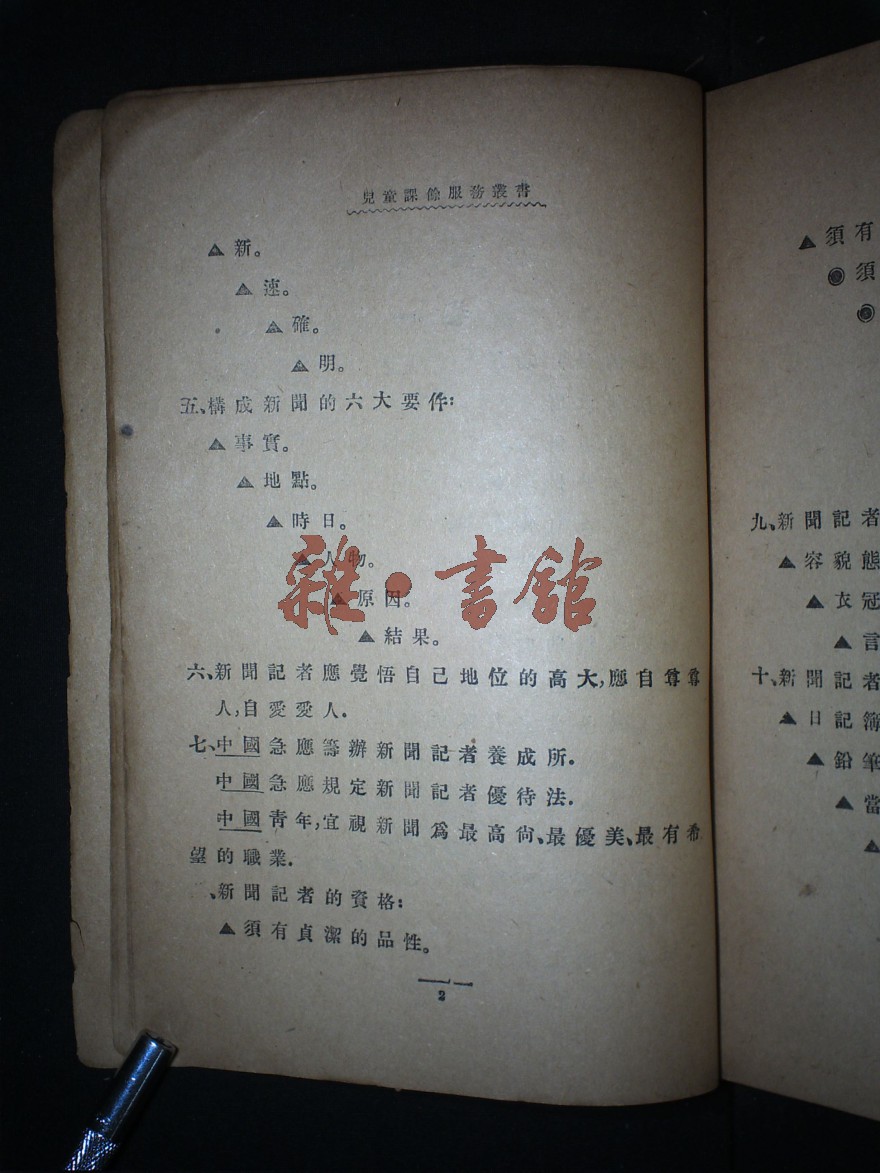 兒童課餘服務叢書
▲新。
▲速。
▲確。
▲明。
五、構成新聞的六大要件：
▲事實。
▲地點。
▲時日。
▲人物。
▲原因。
▲結果。
六、新聞記者應覺悟自己地位的高大，應自尊尊
人，自愛愛人．
七、中國急應籌辦新聞記者養成所．
中國急應規定新聞記者優待法．
中國青年，宜視新聞爲最高尙、最優美、最有希
望的職業．
、新聞記者的資格：
▲須有貞潔的品性。
2
雜·書館
▲須有
◉須
◉
九、新聞記者
▲容貌態
▲衣冠
▲言
十、新聞記者
▲日記簿
▲鉛筆
▲當
▲